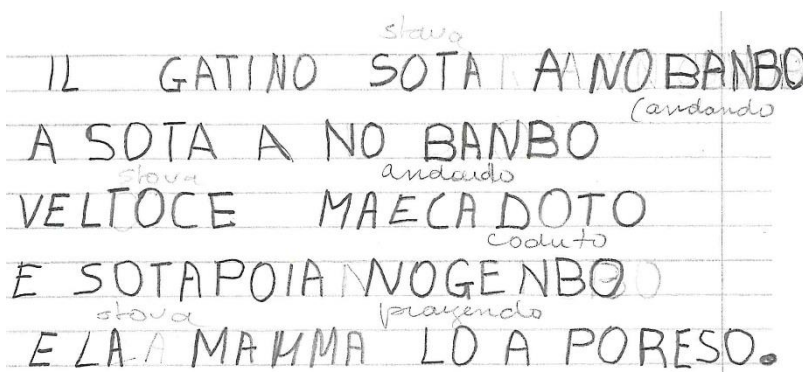 stava
IL GATINO SOTA A NO BANBO
(andando
A SOTA A NO BANBO
stava andando
VELTOCE MAECADOTO
caduto
E SOTAPOIA NOGENBO
stava piangendo
E LA MAMMA LO A PORESO.